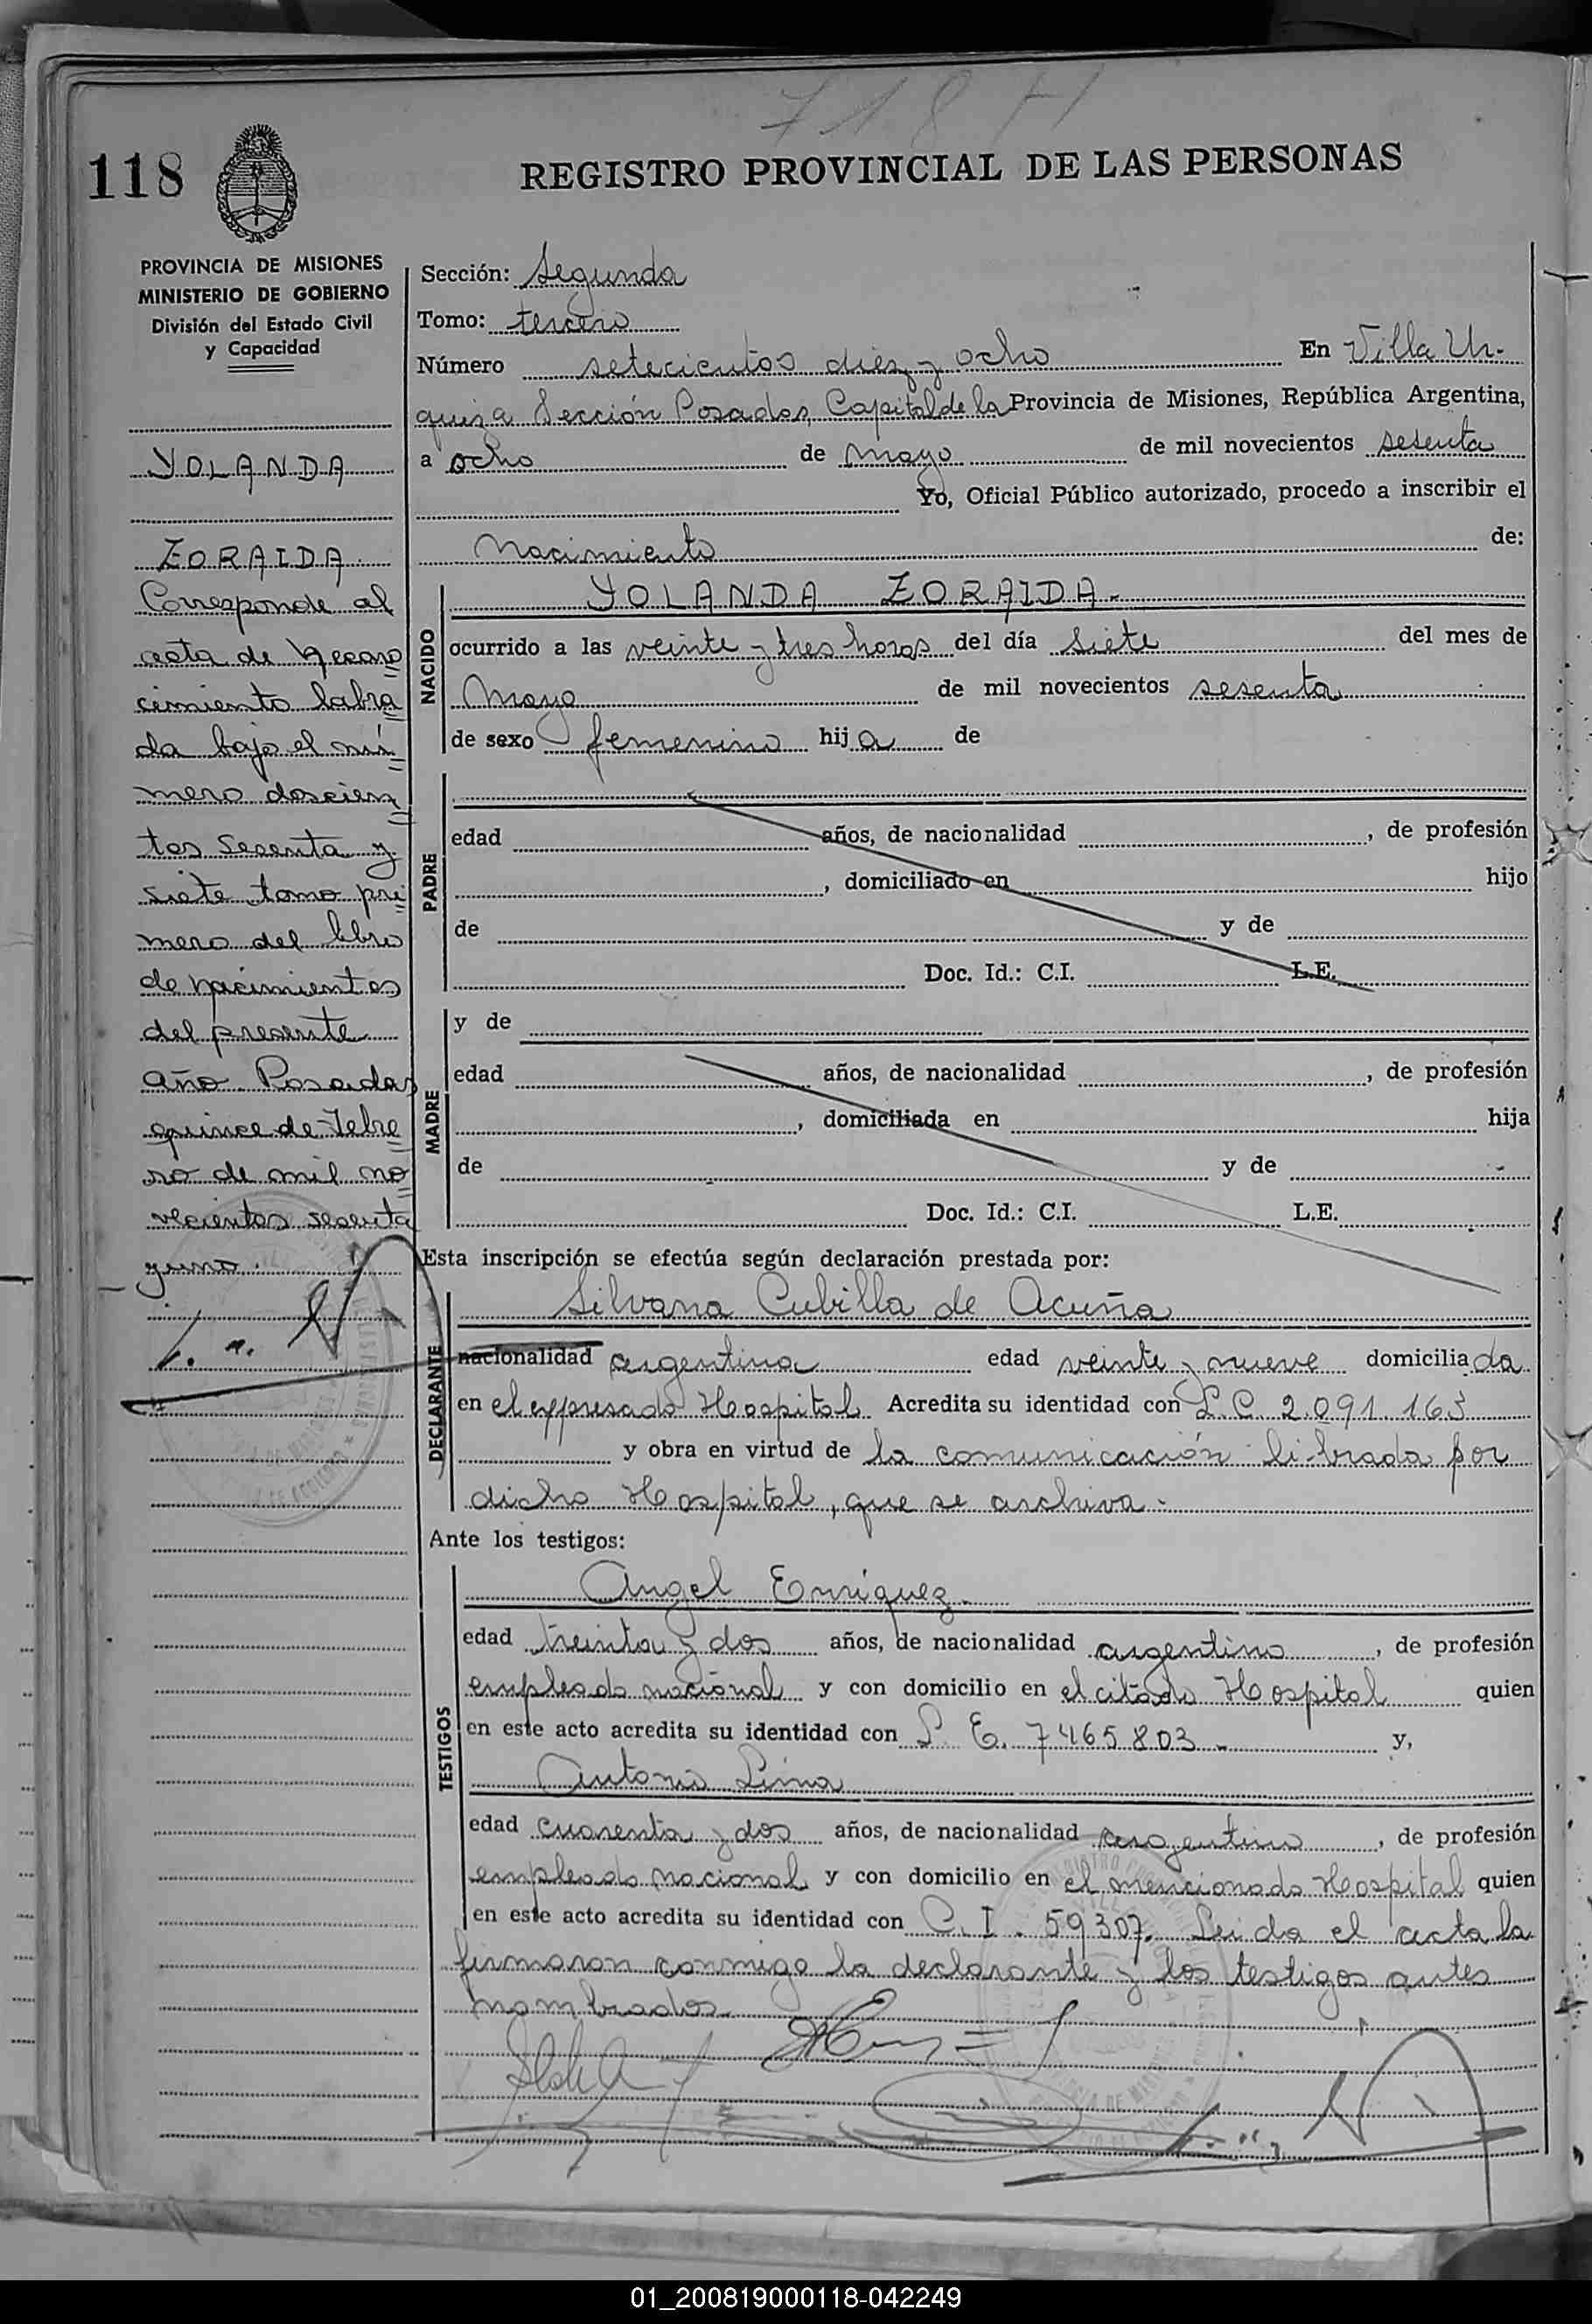 718 H
118
REGISTRO PROVINCIAL DE LAS PERSONAS
PROVINCIA DE MISIONES
MINISTERIO DE GOBIERNO
División del Estado Civil
y Capacidad
YOLANDA
ZORAIDA
Corresponde al
acta de recono
cimiento labra
da bajo el nú
mero doscien
tos sesenta y
siete tomo pri
mero del libro
de nacimientos
del presente
año. Posadas
quince de Febre
ro de mil no
vecientos sesenta
y uno.
Sección: Segunda
Tomo: tercero
Número setecientos diez y ocho En Villa Ur-
quiza Sección Posadas, Capital de la Provincia de Misiones, República Argentina,
a ocho de mayo de mil novecientos sesenta
Yo, Oficial Público autorizado, procedo a inscribir el
Nacimiento de:
NACIDO
YOLANDA ZORAIDA.-
ocurrido a las veinte y tres horas del día siete del mes de
Mayo de mil novecientos sesenta
de sexo femenino hija de
PADRE
edad años, de nacionalidad , de profesión
, domiciliado en hijo
de y de
Doc. Id.: C.I. L.E.
MADRE
y de
edad años, de nacionalidad , de profesión
, domiciliada en hija
de y de
Doc. Id.: C.I. L.E.
Esta inscripción se efectúa según declaración prestada por:
DECLARANTE
Silvana Cubilla de Acuña
nacionalidad argentina edad veinte y nueve domiciliada
en el expresado Hospital Acredita su identidad con L.C. 2.091.163
y obra en virtud de la comunicación librada por
dicho Hospital, que se archiva.-
Ante los testigos:
TESTIGOS
Angel Enriquez.-
edad treinta y dos años, de nacionalidad argentino , de profesión
empleado nacional y con domicilio en el citado Hospital quien
en este acto acredita su identidad con L. E. 7465803 - y,
Antonio Lima
edad cuarenta y dos años, de nacionalidad argentino , de profesión
empleado nacional y con domicilio en el mencionado Hospital quien
en este acto acredita su identidad con C. I. 59307. Leida el acta la
firmaron conmigo la declarante y los testigos antes
nombrados.
01_200819000118-042249